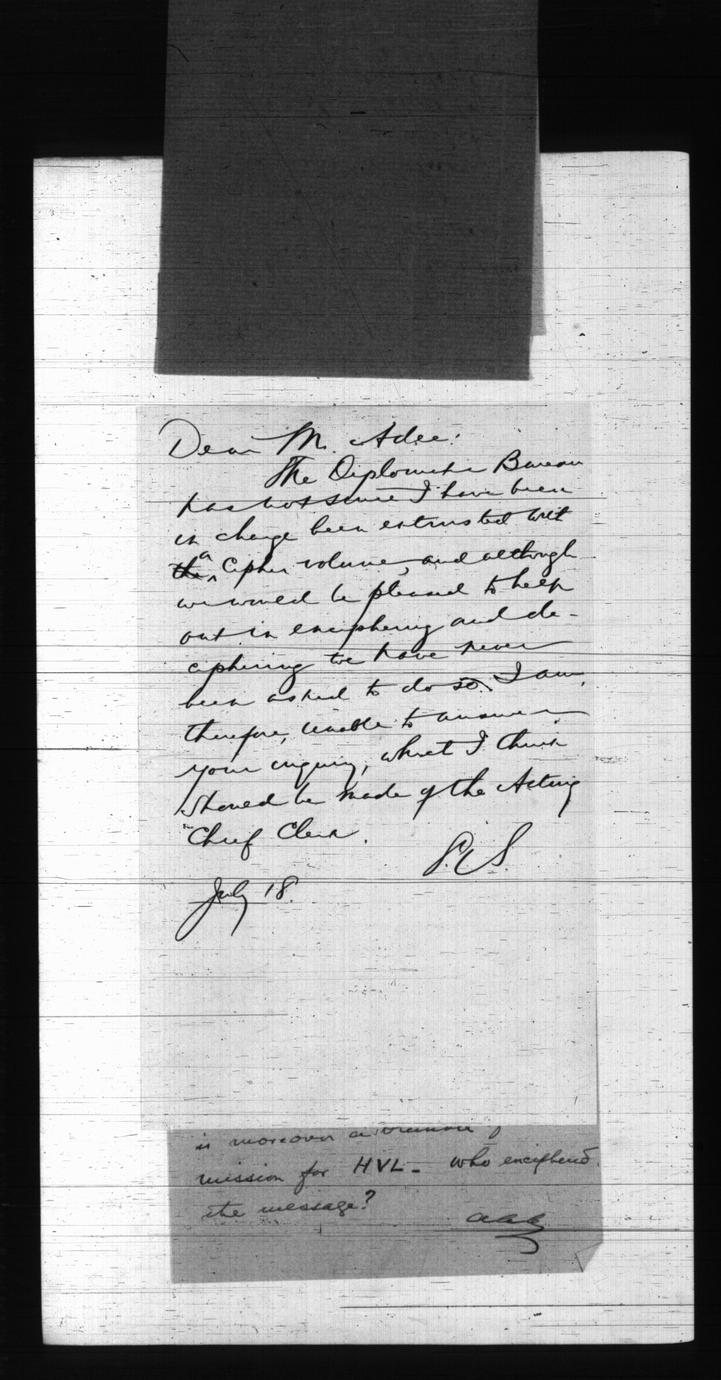 Dear Mr. Adee:
The Diplomatic Bureau
has not since I have been
in charge been entrusted with
the a Cipher volume, and although
we would be pleased to help
out in enciphering and de-
ciphering we have never
been asked to do so. I am,
therefore, unable to answer
your inquiry, which I think
should be made of the Acting
Chief Clerk.
July 18.
is moreover a
mission for HVL - who enciphered
the message?
AAA